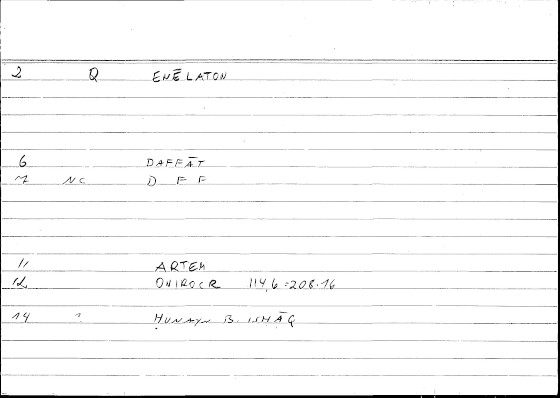 2 Q ENĒLATON
6 DAFFĀT
7 NC D F F
11 ARTEM
12 ONIROCR 114,6=208.16
14 ḤUNAYN B. ISḤĀQ